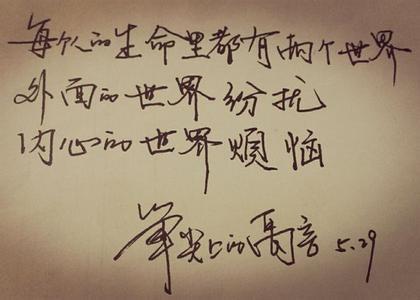 每个人的生命里都有两个世界
外面的世界纷扰
内心的世界烦恼
笔尖上的高音 5.29